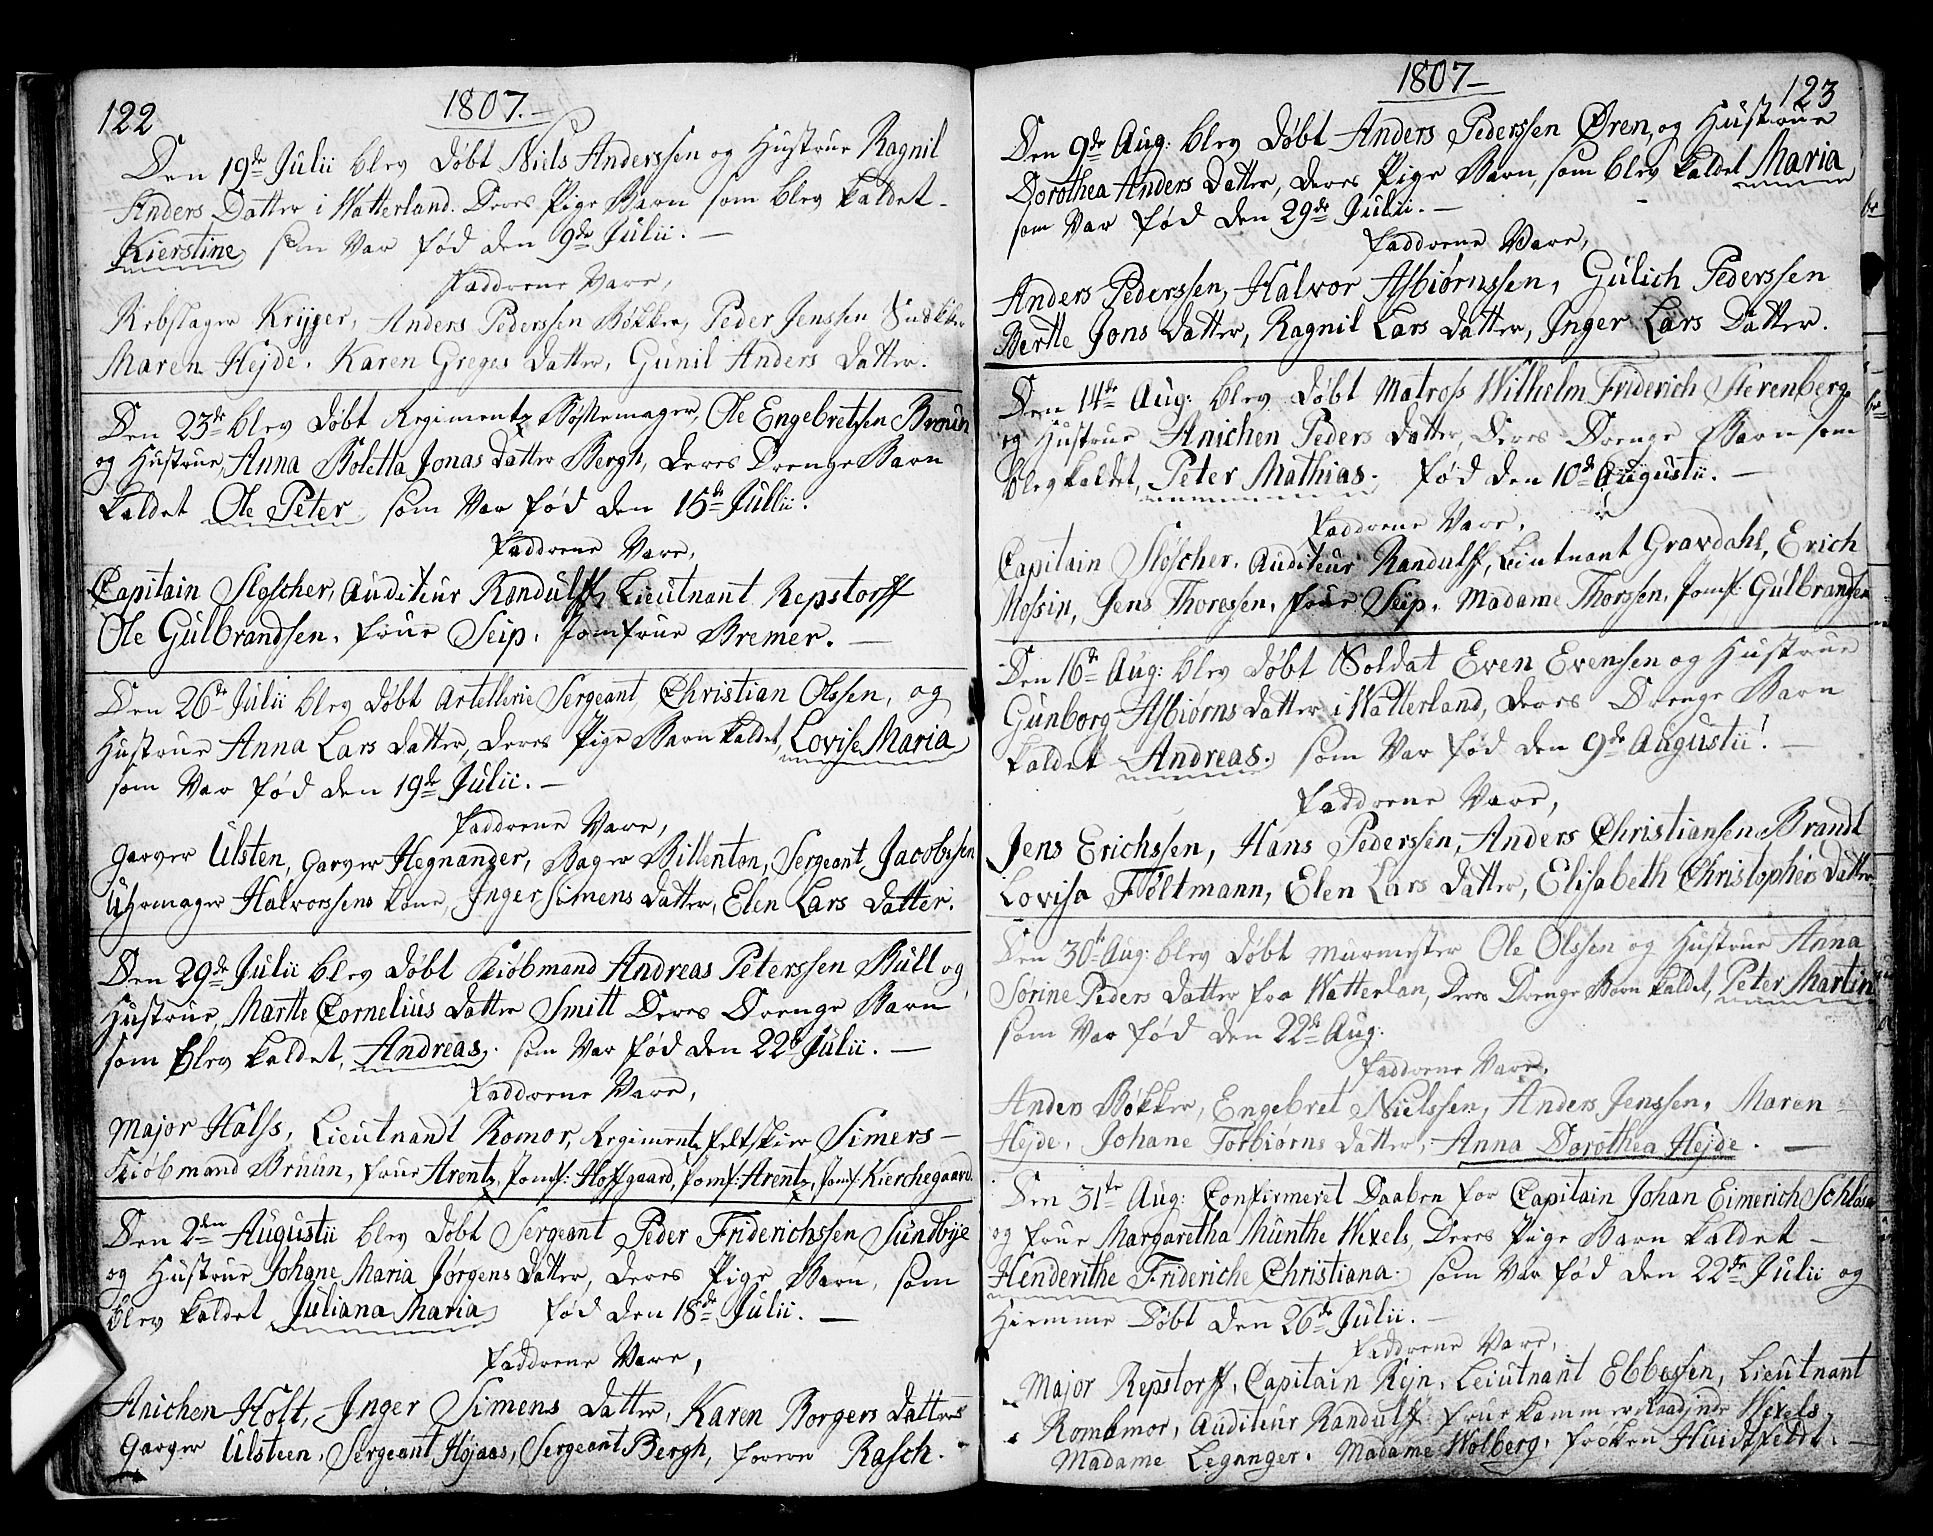 122
1807.-
Den 19de Julii blev døbt Niels Anderssen og Hustrue Ragnil
Anders Datter i Watterland. Deres Pige Barn som blev kaldet-
Kierstine, som Var fød den 9de Julii. -
Faddrene Vare,
Rebslager Kryger, Anders Pederssen Bøkker, Peder Jenssen
Maren Hejde. Karen Greges datter, Gunil Anders datter.
Den 23de blev døbt Regiments Bøssemager, Ole Engebretsen Bruun
og Hustrue, Anna Boletta Jonas datter Bergh, deres Drenge Barn
kaldet Ole Peter, som Var fød den 15de Jullii.
Faddrene Vare,
Capitain Sløscher, Auditeur Randulff, Lieutnant Repstorff
Ole Gulbrandsen. frue Seip. Jomfrue Bremer. -
Den 26de Julii blev døbt Artellerie Sergeant, Christian Olssen, og
Hustrue Anna Lars datter, deres Pige Barn kaldet, Lovise Maria
som Var fød den 19de Julii. -
Faddrene Vare,
Garver Ulsten, Garver Hegnanger, Bager Billenton, Sergeant Jacobssen
Uhrmager Halvorssens kone, Inger Simens datter, Elen Lars datter.
Den 29de Julii blev døbt Kiøbmand Andreas Peterssen Bull og
Hustrue, Marthe Cornelius datter Smitt Deres Drenge Barn
som blev kaldet, Andreas. som Var fød den 22de Julii. -
Faddrene Vare,
Major Halss, Lieutnandt Romor, Regiments feltskier Simers-
Kiøbmand Bruun, frue Arentz, Jomf: Hoffgaard, Jomf: Arentz, Jomf: Kierchegaard.
Den 2den Augustii blev døbt Sergeant Peder Friderichssen Sundbye
og Hustrue Johane Maria Jørgens datter, deres Pige Barn, som
blev kaldet Juliana Maria, fød den 18de Julii. -
Faddrene Vare,
Anichen Holt, Inger Simens datter, Karen Borgers datter
Garver Ulsteen, Sergeant Højaas, Sergeant Bergh, Rasch.
1807-
123
Den 9de Aug: blev døbt Anders Pederssen Øren, og Hustrue
Dorothea Anders datter, deres Pige Barn, som blev kaldet Maria
som Var fød den 29de Julii. -
Faddrene Vare,
Anders Pederssen, Halvor Asbiørnssen, Gulich Pederssen
Berthe Jons datter, Ragnil Lars datter, Inger Lars Datter.
Den 14de Aug: blev døbt Matros Wilhelm Friderich Sterenberg
og Hustrue Anichen Peders datter, Deres Drenge Barn som
blev kaldet, Peter Mathias. fød den 10de Augustii. -
Faddrene Vare,
Capitain Sløscher. Auditeur Randulff, Lieutnant Gravdahl, Erich
Mossin, Jens Thoressen, frue Seip. Madame Thorssen, Jomf: Gulbrandsen
Den 16de Aug: blev døbt Soldat Even Evenssen og Hustrue
Gunborg Asbiørns datter i Watterland, deres Drenge Barn
kaldet Andreas. som Var fød den 9de Augustii. -
Faddrene Vare,
Jens Erichssen, Hans Pederssen, Anders Christiansen Brandt
Lovisa Feltmann, Elen Lars datter, Elisabeth Christophers datter
Den 30te Aug: blev døbt Murmester Ole Olssen og Hustrue Anna
Sorine Peders datter fra Watterlan, deres Drenge Barn kaldet, Peter Martin
som Var fød den 22de Aug:
Faddrene Vare,
Anders Bøkker, Engebret Nielssen, Anders Jenssen, Maren
Hejde, Johane Torbiørns datter, Anna Dorothea Hejde. -
Den 31te Aug: Confirmeret Daaben for Capitain Johan Eimerich
og frue Margaretha Munthe Wexels, Deres Pige Barn kaldet -
Henderithe Frideriche Christiana. som Var fød den 22de Julii og
Hiemme Døbt den 26de Julii. -
Faddrene Vare,
Major Repstorff, Capitain Rejn, Leiutnant Ebbessen, Lieutnant
Rombmor, Auditeur Randulff. frue kammerRaadinde Wexels
Madame Leganger. Madame Wolberg, frøken Huidtfeldt. -